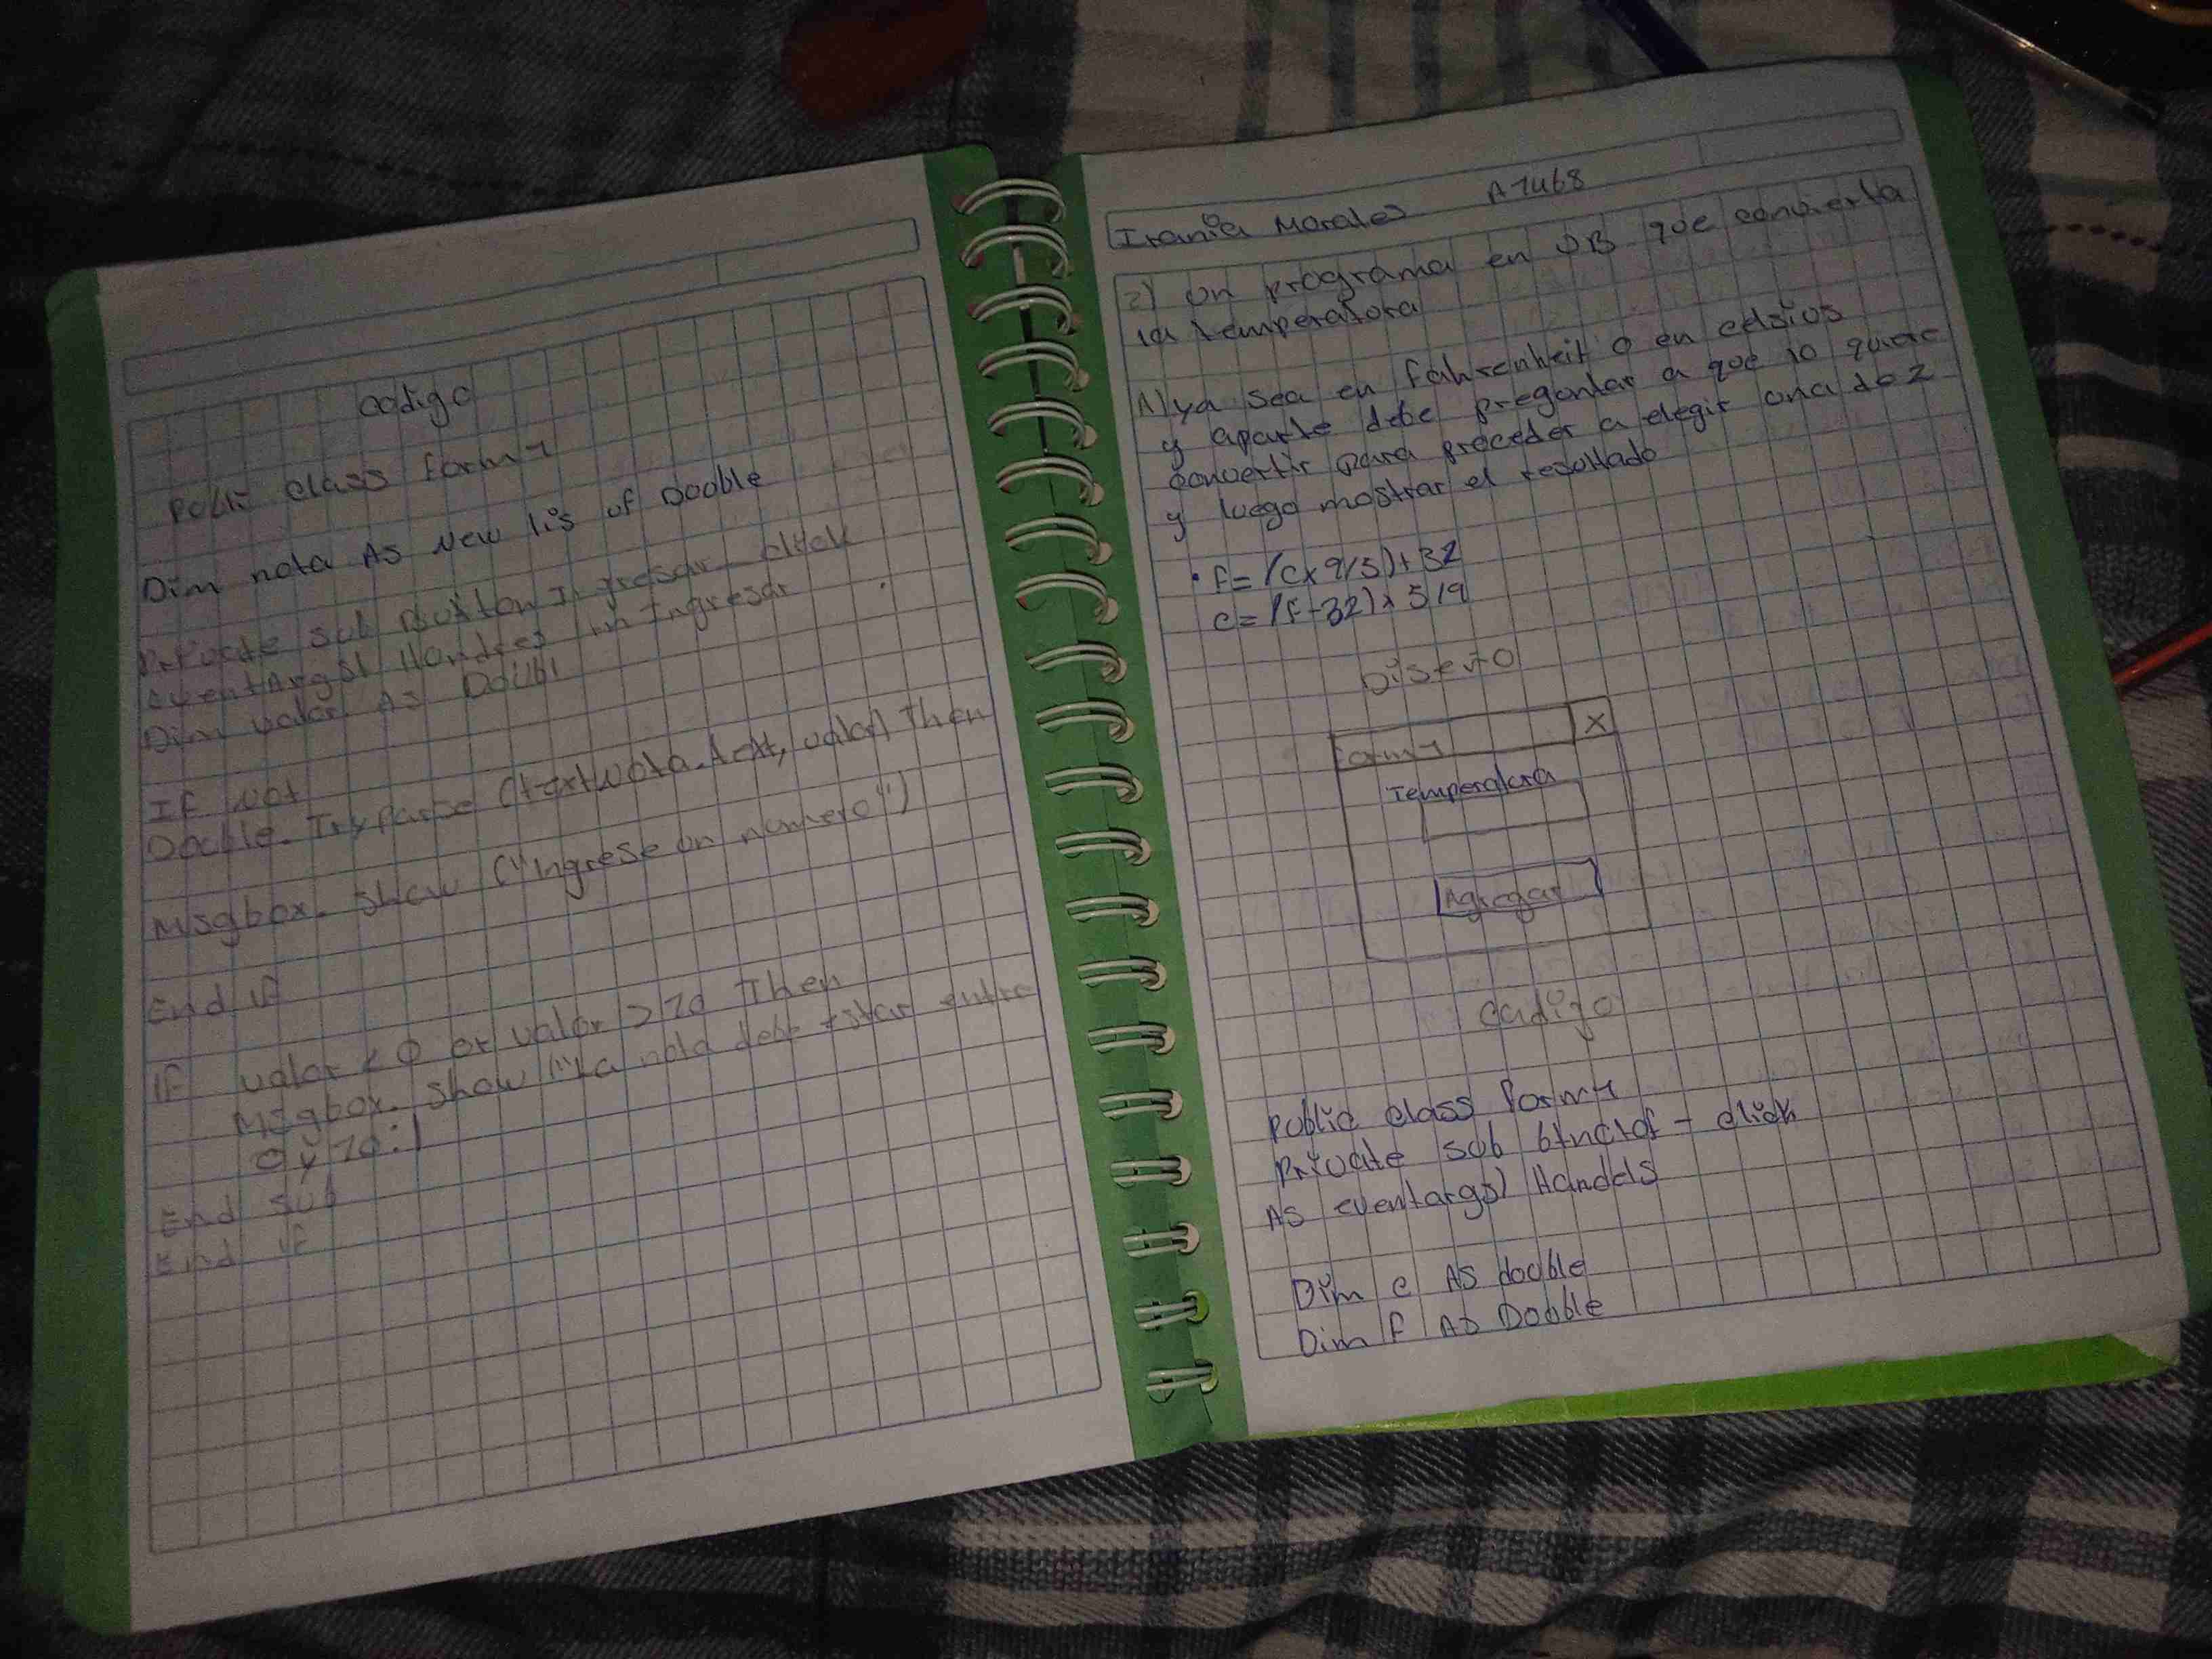 codigo
Public class form1
Dim nota As New lis of Double
Private sub Button Ingresar click
eventArgs) Handles btn Ingresar
Dim valor As Doubl
If not
Double. Try parse (textNota.text, valor) then
Msgbox. show ("ingrese un numero")
End if
if valor < 0 or valor > 10 Then
Msgbox. show ("La nota debe estar entre
0 y 10:)
End sub
End if
Irania Morales A1468
2) un programa en VB que convierta
la temperatura
A) ya sea en fahrenheit o en celsios
y aparte debe preguntar a que lo quiere
convertir para proceder a elegir una de 2
y luego mostrar el resultado
• f = (c x 9/5) + 32
c = (f - 32) x 5/9
Diseño
Form1 X
Temperatura
Agregar
Codigo
Public class form1
Private sub btnctof - click
As eventargs) Handels
Dim c As double
Dim f As Double